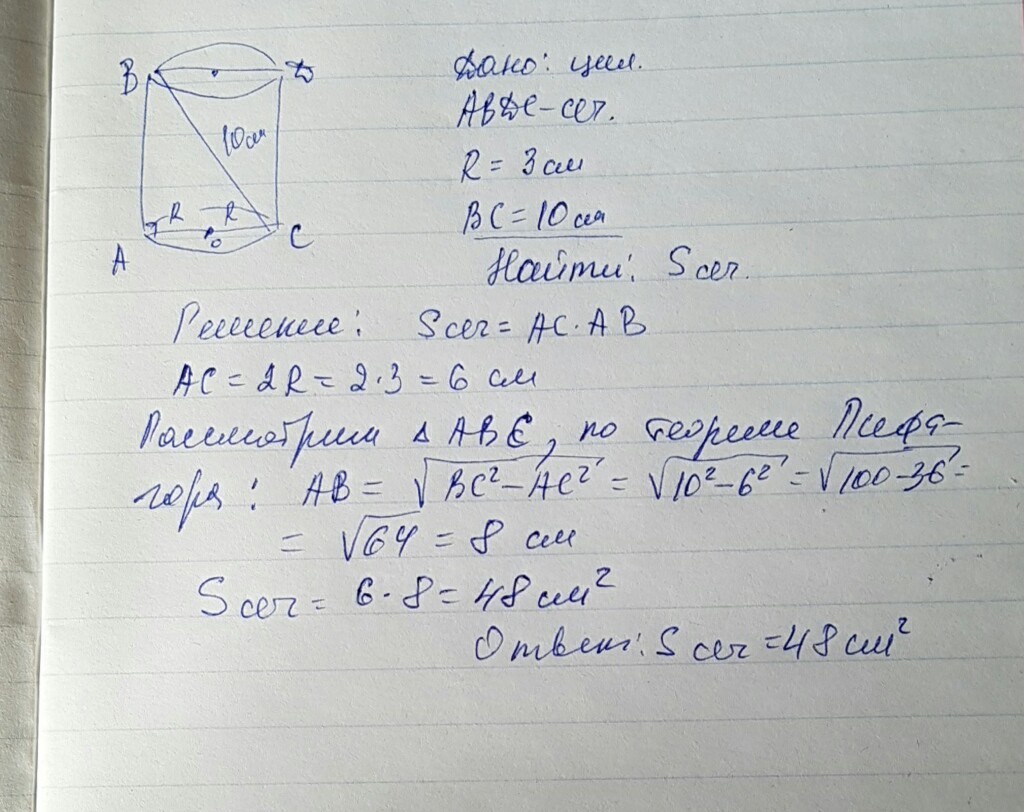 B D
10см
R R
A O C
Дано: цил.
ABDC - сеч.
R = 3 см
BC = 10 см
Найти: S сеч.
Решение: S сеч = AC · AB
AC = 2R = 2·3 = 6 см
Рассмотрим Δ ABC, по теореме Пифа-
гора: AB = √BC² - AC² = √10² - 6² = √100 - 36 =
= √64 = 8 см
S сеч = 6 · 8 = 48 см²
Ответ: S сеч = 48 см²